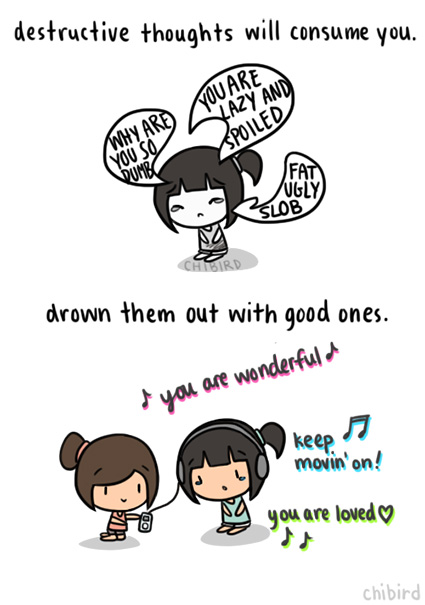 destructive thoughts will consume you.
WHY ARE
YOU SO
DUMB
YOU ARE
LAZY AND
SPOILED
FAT
UGLY
SLOB
CHIBIRD
drown them out with good ones.
♪ you are wonderful ♪
keep ♫
movin' on!
you are loved ♡
♪ ♪
chibird